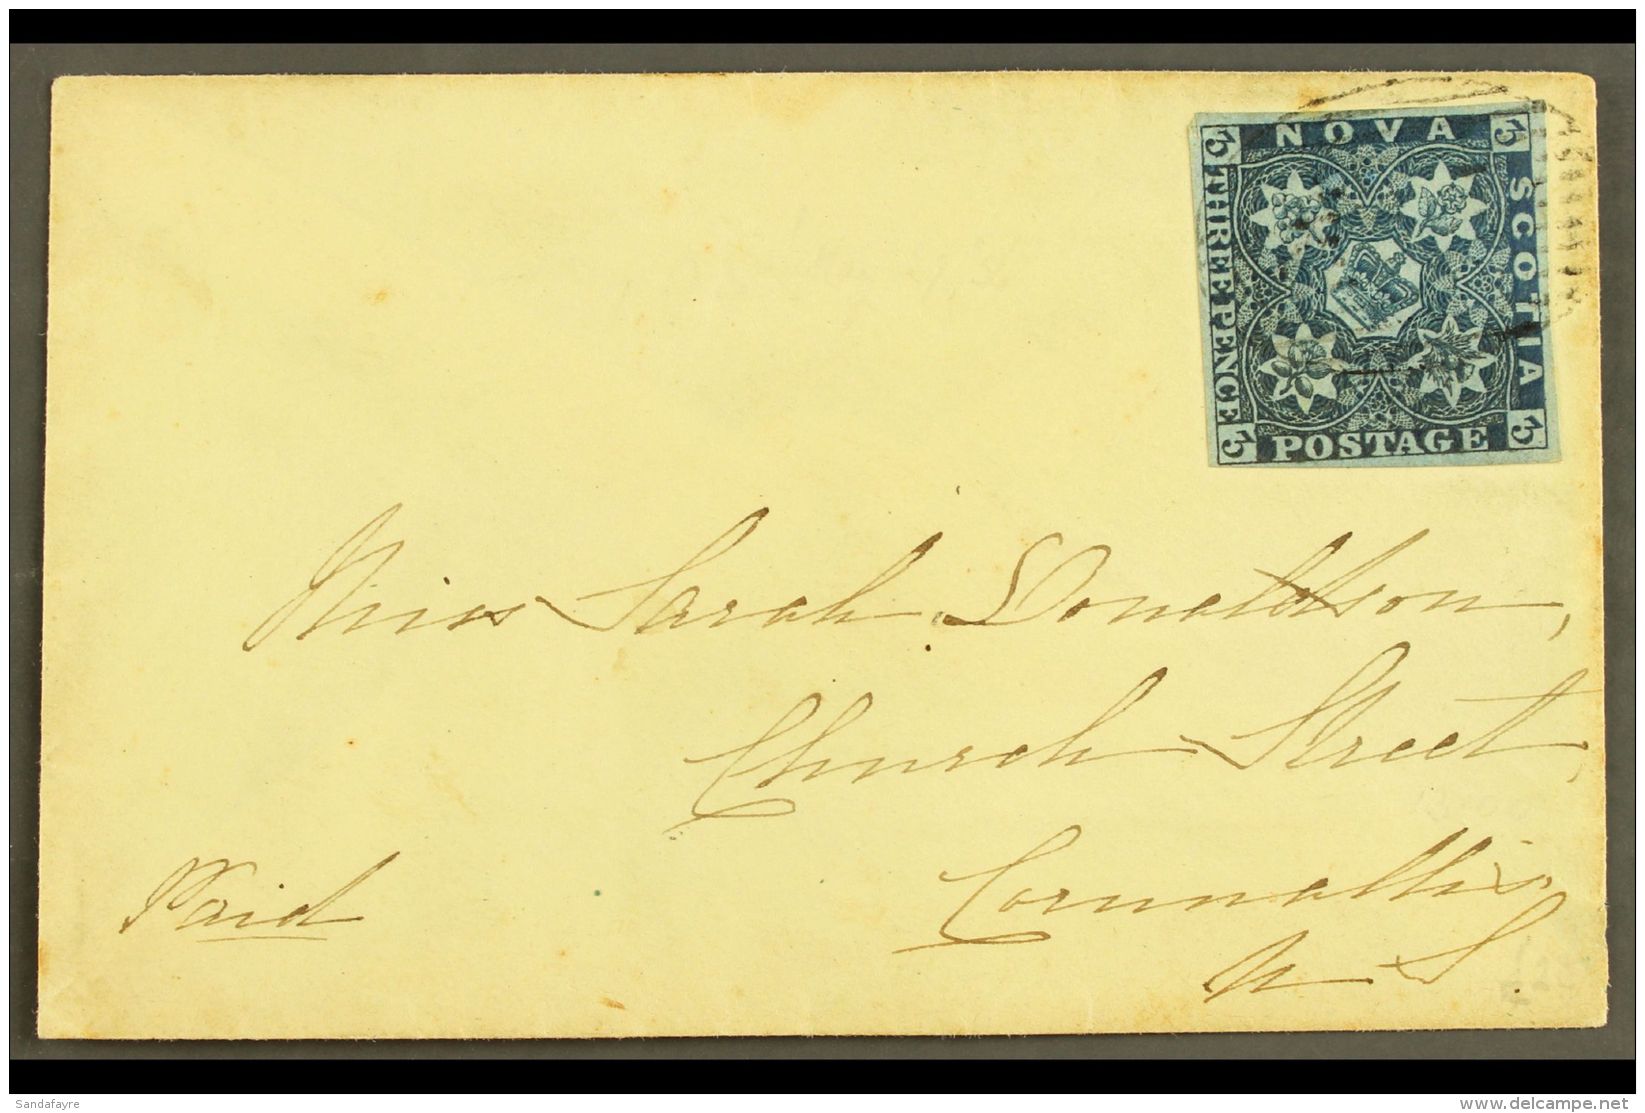 3 NOVA 3
SCOTIA
THREE PENCE
3 POSTAGE 3
Miss Sarah Donaldson,
Church Street,
Cornwallis
N S.
Paid
Sandafayre
delcampe.net